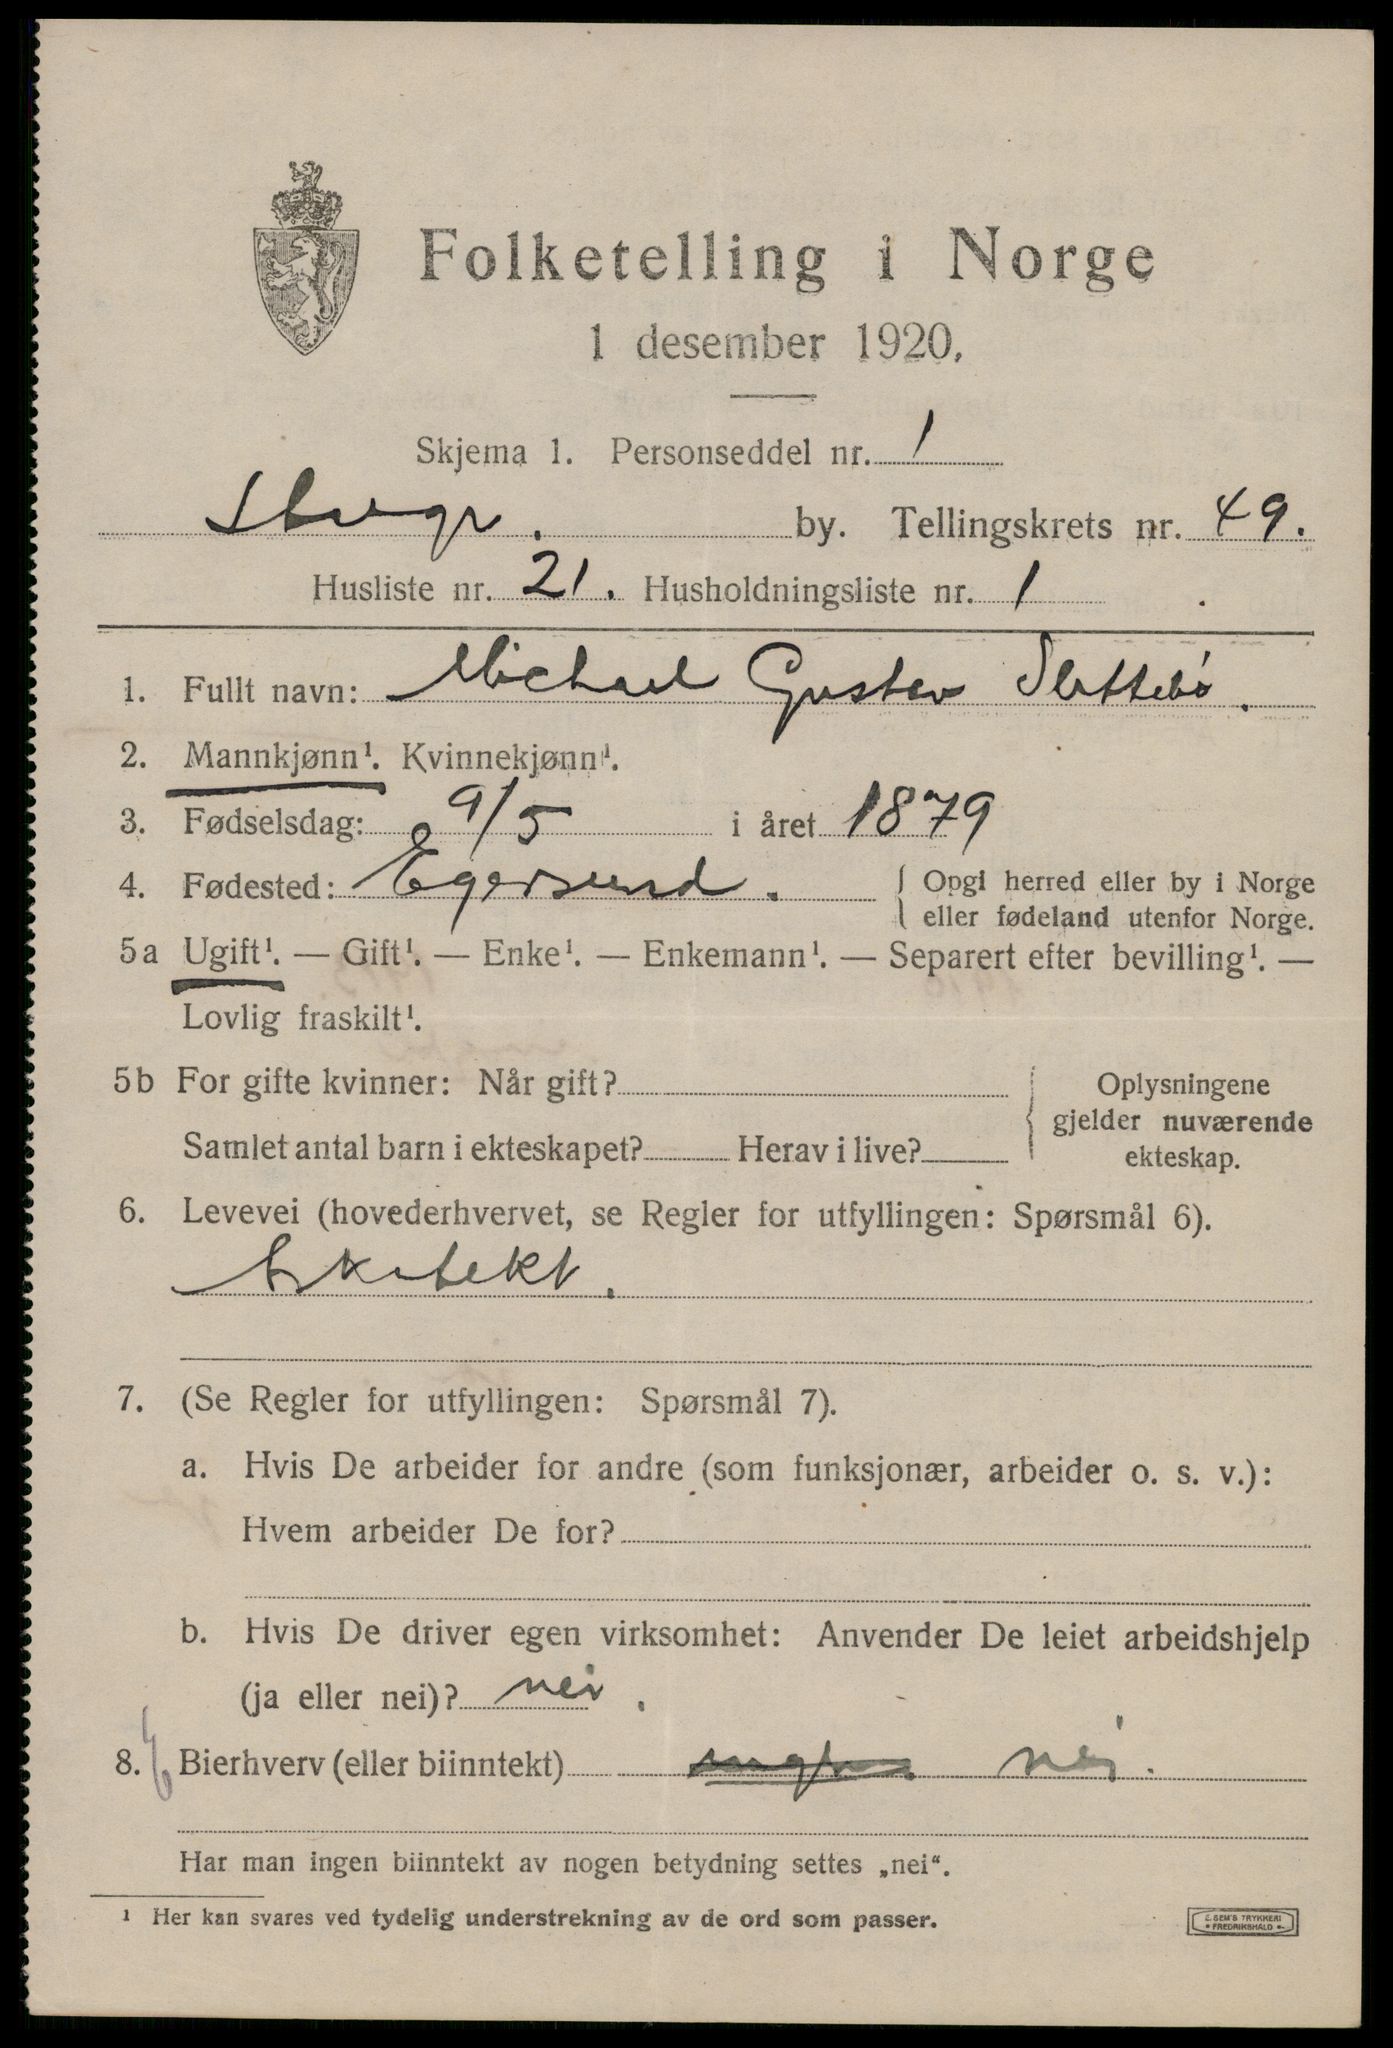 Folketelling i Norge
1 desember 1920.
Skjema 1. Personseddel nr. 1
Stvgr. by. Tellingskrets nr. 49.
Husliste nr. 21. Husholdningsliste nr. 1
1. Fullt navn: Michael Gustav Slettebó.
2. Mannkjønn¹. Kvinnekjønn¹.
3. Fødselsdag: 9/5 i året 1879
4. Fødested: Egersund. { Opgi herred eller by i Norge
eller fødeland utenfor Norge.
5a Ugift¹. — Gift¹. — Enke¹. — Enkemann¹. — Separert efter bevilling¹. —
Lovlig fraskilt¹.
5b For gifte kvinner: Når gift? { Oplysningene
gjelder nuværende
Samlet antal barn i ekteskapet? Herav i live? ekteskap.
6. Levevei (hovederhvervet, se Regler for utfyllingen: Spørsmål 6).
Arkitekt.
7. (Se Regler for utfyllingen: Spørsmål 7).
a. Hvis De arbeider for andre (som funksjonær, arbeider o. s. v.):
Hvem arbeider De for?
b. Hvis De driver egen virksomhet: Anvender De leiet arbeidshjelp
(ja eller nei)? nei.
8. Bierhverv (eller biinntekt) nei.
Har man ingen biinntekt av nogen betydning settes „nei“.
¹ Her kan svares ved tydelig understrekning av de ord som passer.
E. SEM'S TRYKKERI
• FREDRIKSHALD •